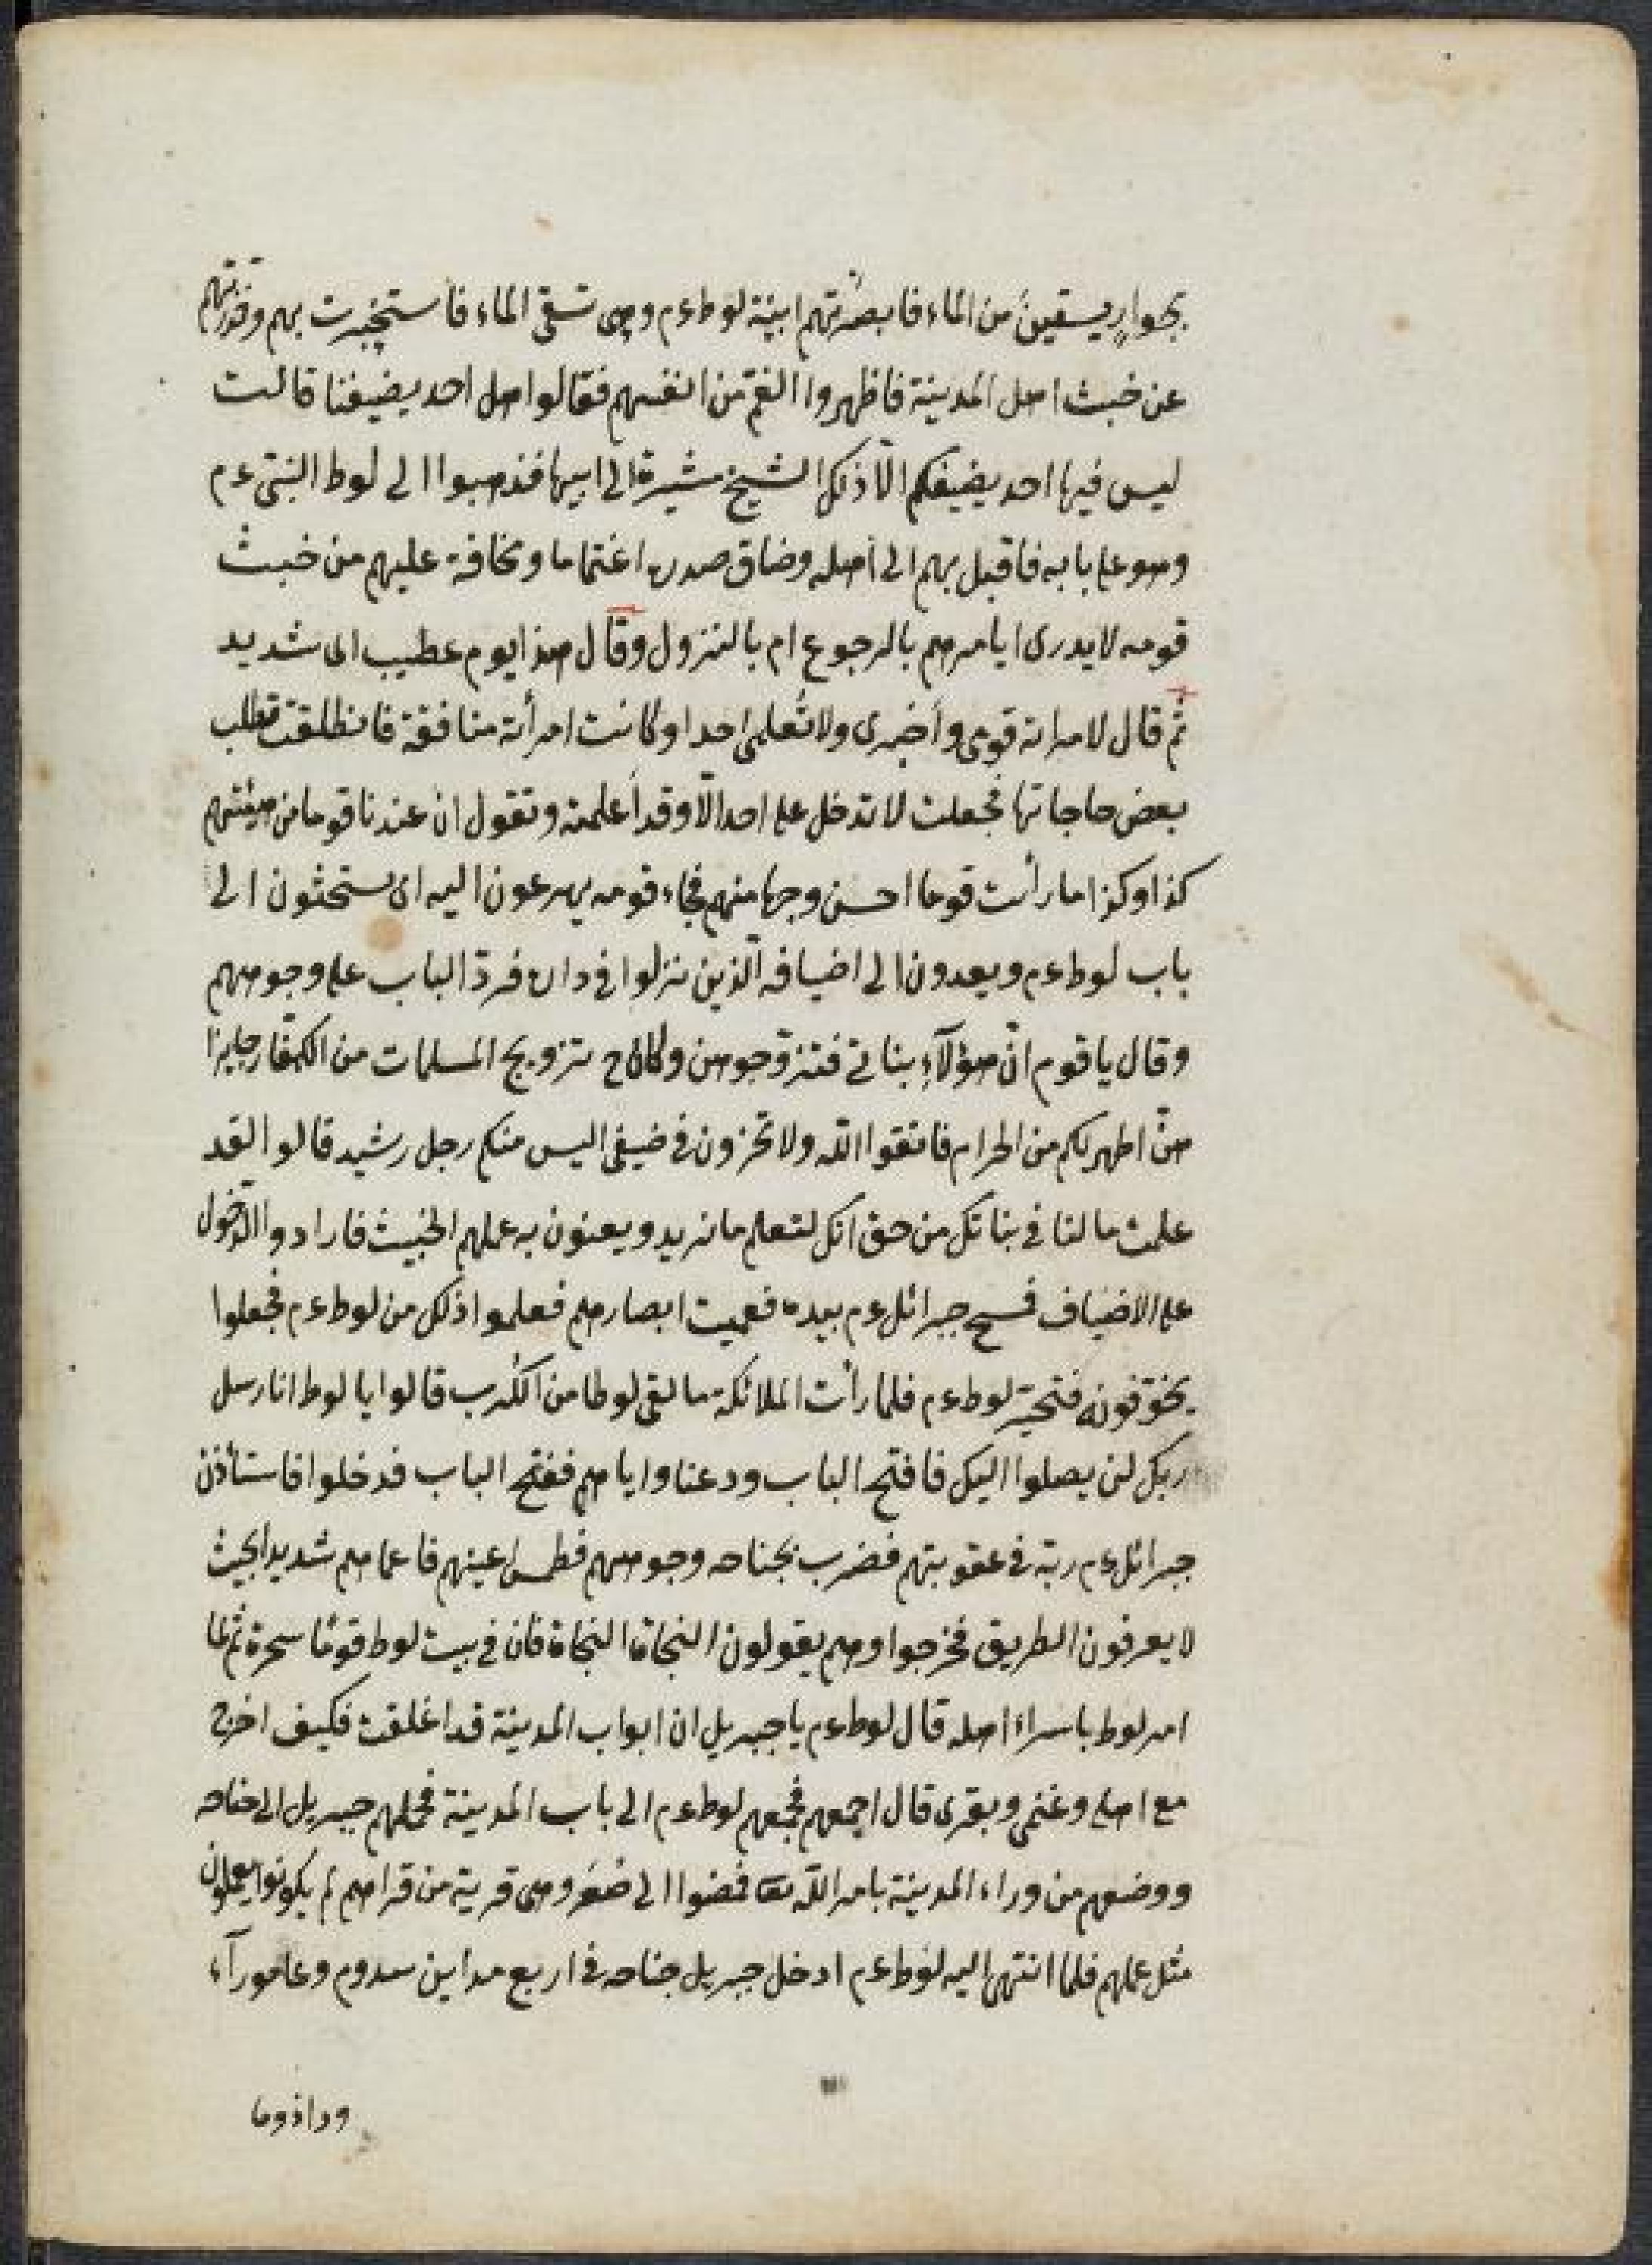 بجوارٍ يستقينَ من الماء فابصرتهم ابنة لوط عم وهى تسقى الماء فأستخبرت بهم وحذرتهم
عن خبث اهل المدينة فاظهروا الغم من انفسهم فقالوا هل احد يضيفنا قالت
ليس فيها احد يضيفكم الّا ذلك الشيخ مشيرة الى ابيها فذهبوا الى لوط النبى عم
وهو على بابه فاقبل بهم الى اهله وضاق صدره اغتماما ومخافة عليهم من خبث
قومه لا يدرى ايامرهم بالرجوع ام بالنزول وقال هذا يوم عصيب اى شديد
ثم قال لامراته قومى وأخبزى ولا تُعلمى احدا وكانت امرأته منافقة فانطلقت تطلب
بعض حاجاتها فجعلت لا تدخل على احد الّا وقد أعلمته وتقول ان عندنا قوما من هيئتهم
كذا وكذا ما رأيت قوما احسن وجها منهم فجاء قومه يهرعون اليه اى يستحثون الى
باب لوط عم ويعدون الى اضيافه الّذين نزلوا فى داره فردّ الباب على وجوههم
وقال يا قوم انّ هؤلآء بناتى فتزوّجوهن وكان ح تزويج المسلمات من الكفّار جايزا
هنّ اطهر لكم من الحرام فاتقوا اللّه ولا تخزون فى ضيفى اليس منكم رجل رشيد قالوا لقد
علمت ما لنا فى بناتك من حق انّك لتعلم ما نريد ويعنون به عملهم الخبيث فارادوا الدّخول
على الاضياف فمسح جبرائل عم بيده فعميت ابصارهم فعلموا ذلك من لوط عم فجعلوا
يخوّفونه فتحيّر لوط عم فلما رأت الملائكة ما لقى لوطا من الكرب قالوا يا لوط انا رسل
ربك لن يصلوا اليك فافتح الباب ودعنا واياهم ففتح الباب فدخلوا فاستأذن
جبرائل عم ربّه فى عقوبتهم فضرب بجناحه وجوههم فطمس اعينهم فاعماهم شديدا بحيث
لا يعرفون الطريق فخرجوا وهم يقولون النجاة النجاة فان فى بيت لوط قومًا سحرة ثم لما
امر لوط باسراء اهله قال لوط عم يا جبريل ان ابواب المدينة قد اغلقت فكيف اخرج
مع اهلى وغنمى وبقرى قال اجمعهم فجمعهم لوط عم الى باب المدينة فحملهم جبريل الى جناحه
ووضعهم من وراء المدينة بامر اللّه تعا فمضوا الى صُغَر وهى قرية من قراهم لم يكونوا يعملون
مثل عملهم فلما انتهى اليه لوط عم ادخل جبريل جناحه فى اربع مداين سدوم وعامورآء
وداذوما